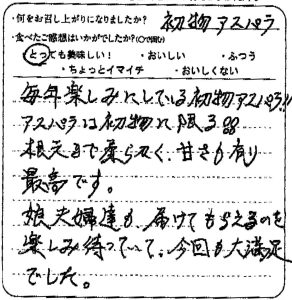 ・何をお召し上がりになりましたか? 初物アスパラ
・食べたご感想はいかがでしたか?(○で囲り)
とっても美味しい! ・おいしい ・ふつう
・ちょっとイマイチ ・おいしくない
毎年楽しみにしている初物アスパラ!!
アスパラは初物に限る
根元まで柔らかく、甘さも有り
最高です。
娘夫婦達も届けてもらえるのを
楽しみ待っていて、今回も大満足
でした。